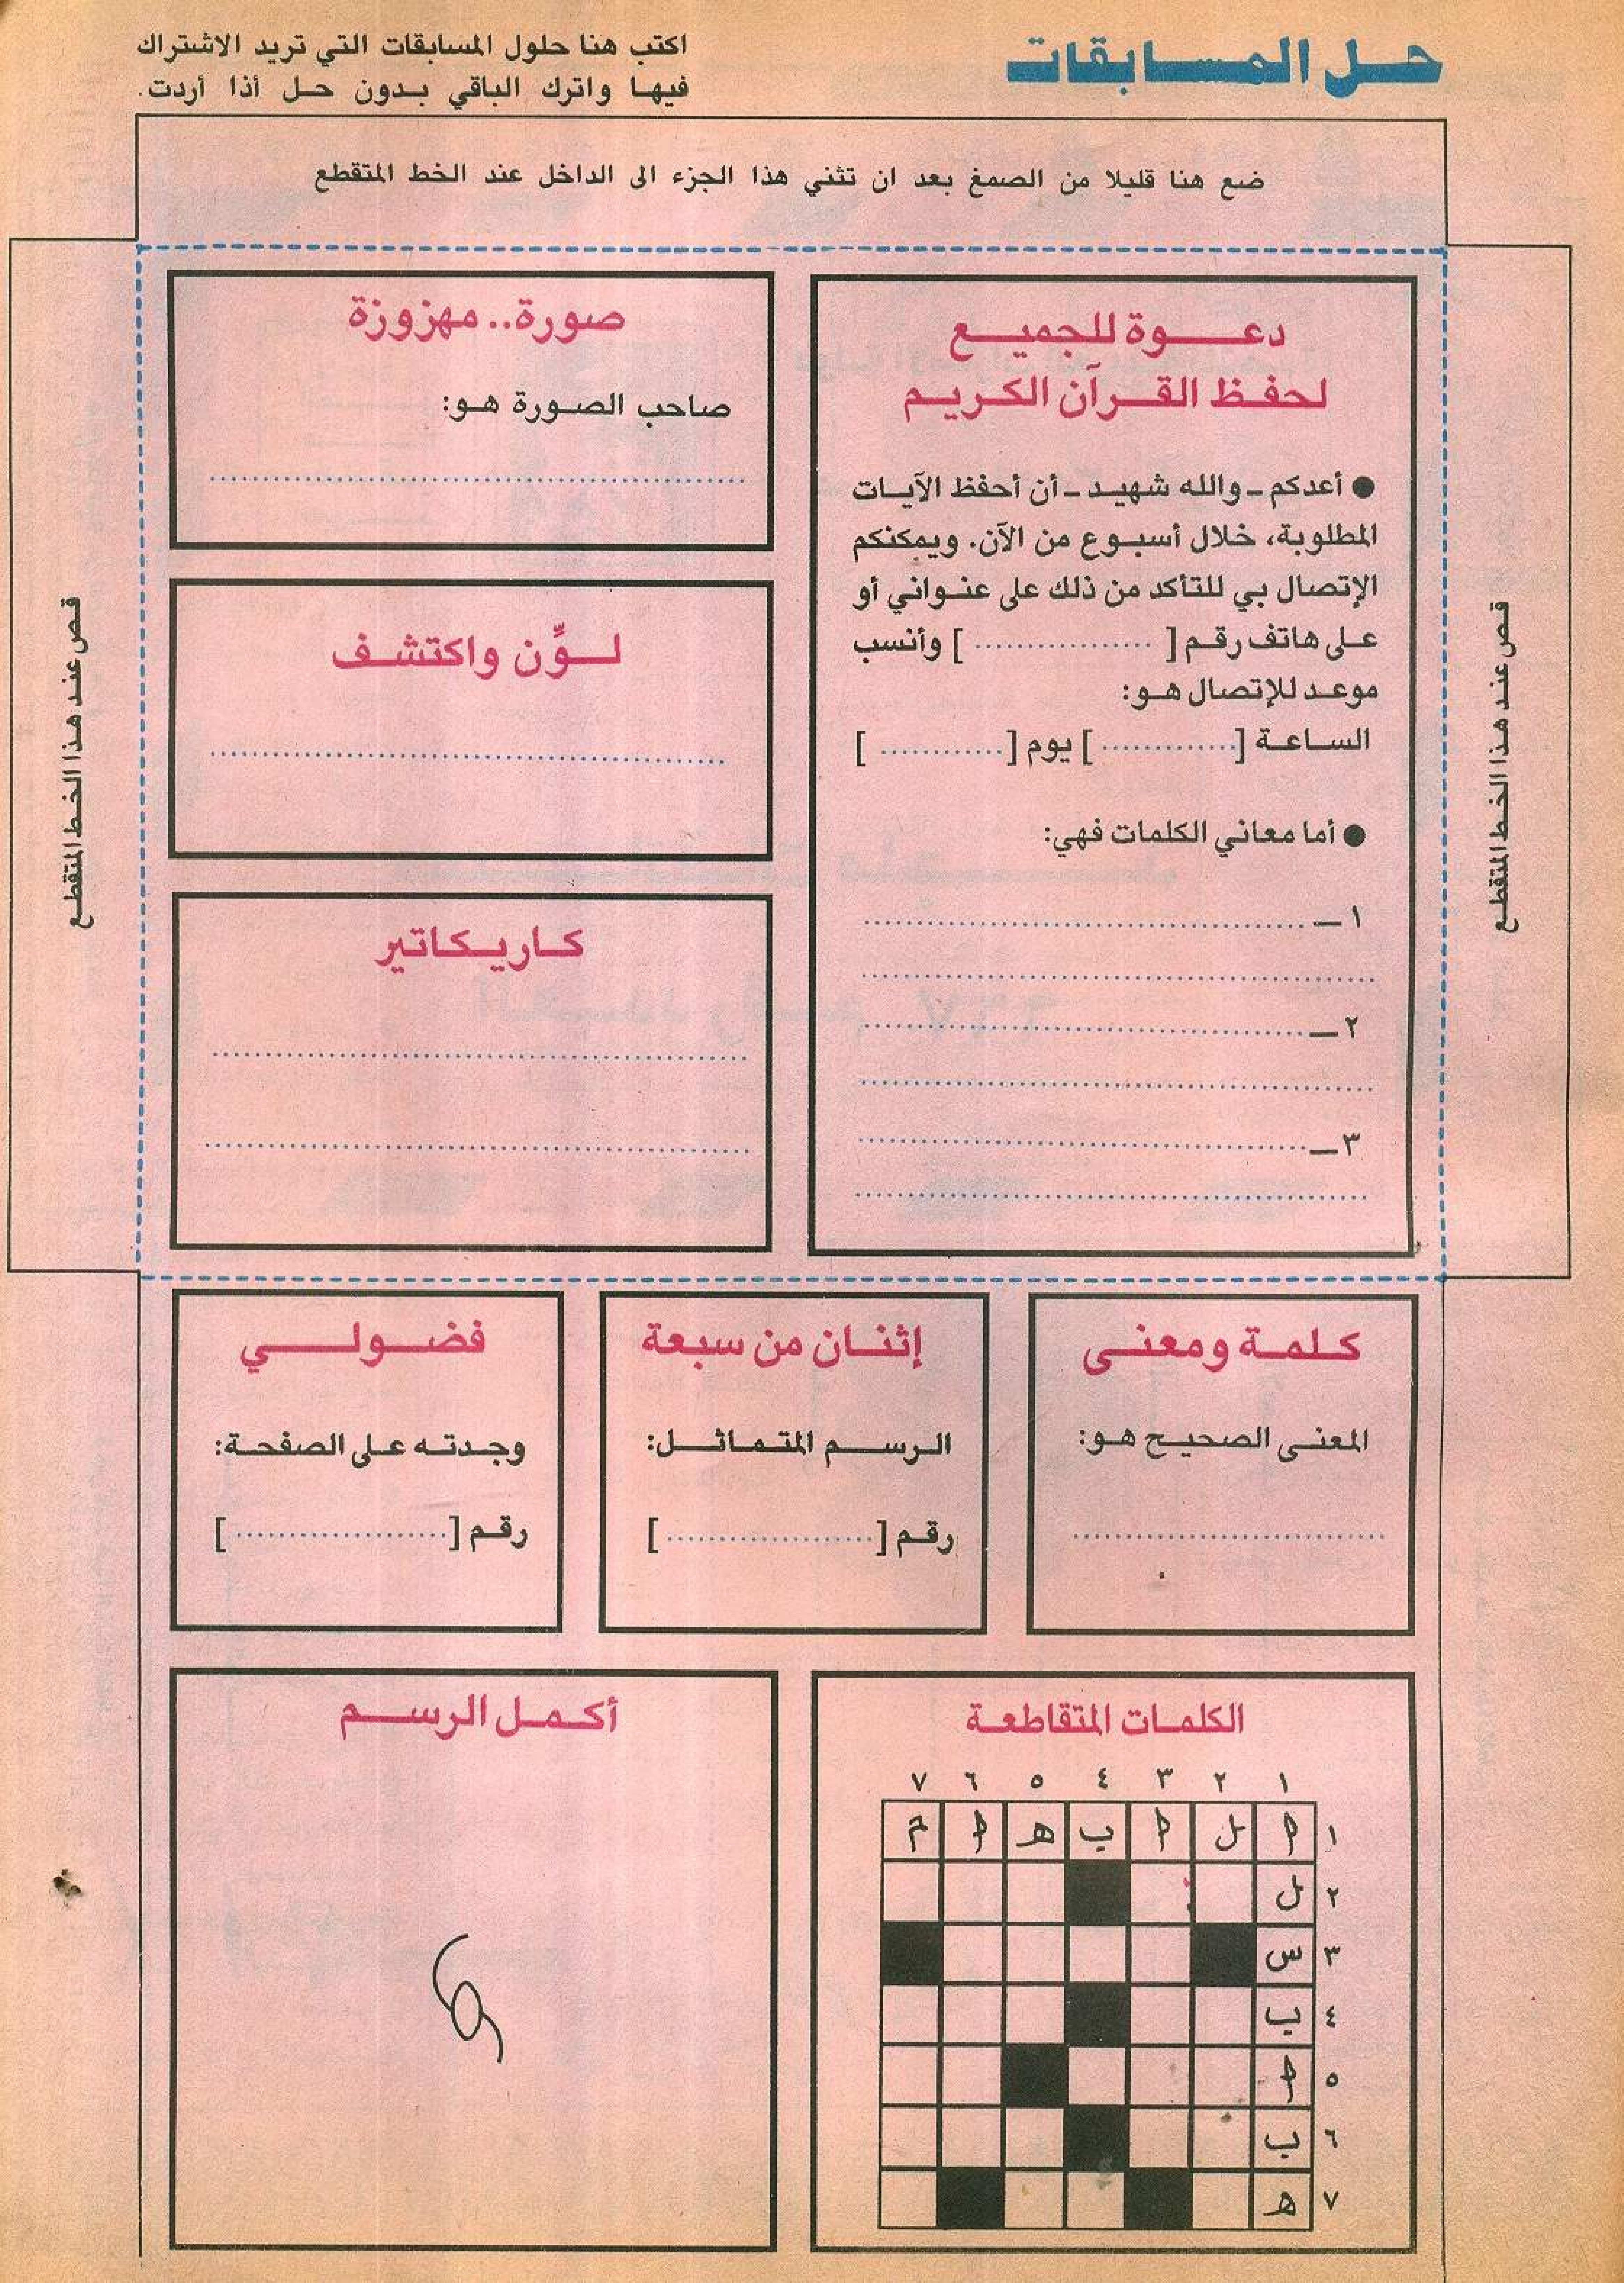 حل المسابقات
اكتب هنا حلول المسابقات التي تريد الاشتراك
فيها واترك الباقي بدون حل أذا أردت.
ضع هنا قليلا من الصمغ بعد ان تثني هذا الجزء الى الداخل عند الخط المتقطع
قص عند هذا الخط المتقطع
دعوة للجميع
لحفظ القرآن الكريم
● أعدكم - والله شهيد - أن أحفظ الآيات
المطلوبة، خلال أسبوع من الآن. ويمكنكم
الإتصال بي للتأكد من ذلك على عنواني أو
على هاتف رقم [ ................. ] وأنسب
موعد للإتصال هو:
الساعة [.............] يوم [............ ]
● أما معاني الكلمات فهي:
١ـ ..........................................
..................................................
٢ـ ..........................................
..................................................
٣ـ ..........................................
..................................................
صورة.. مهزوزة
صاحب الصورة هو:
..................................................
لوِّن واكتشف
..................................................
كاريكاتير
..................................................
..................................................
قص عند هذا الخط المتقطع
كلمة ومعنى
المعنى الصحيح هو:
..............................
إثنان من سبعة
الرسم المتماثل:
رقم [.................... ]
فضولي
وجدته على الصفحة:
رقم [.................... ]
الكلمات المتقاطعة
١ ٢ ٣ ٤ ٥ ٦ ٧
١ ا ل ا ب ه ا م
٢ ل
٣ س
٤ ب
٥ ا
٦ ب
٧ ه
أكمل الرسم